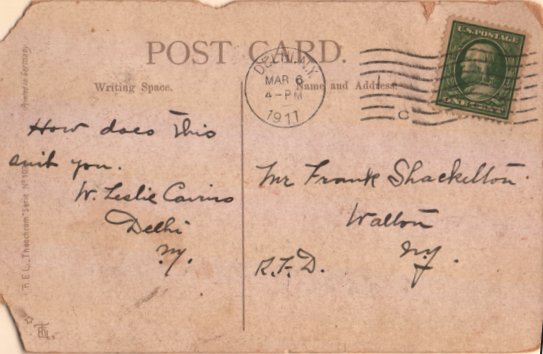 POST CARD.
Writing Space.
Name and Address
DELHI, N.Y.
MAR 6
4-PM
1911
C
U.S. POSTAGE
ONE CENT
How does this
suit you.
W. Leslie Cairns
Delhi
N.Y.
Mr Frank Shackelton.
Walton
N.Y.
R.F.D.
T. E. L. "Theochrom" Serie Nº